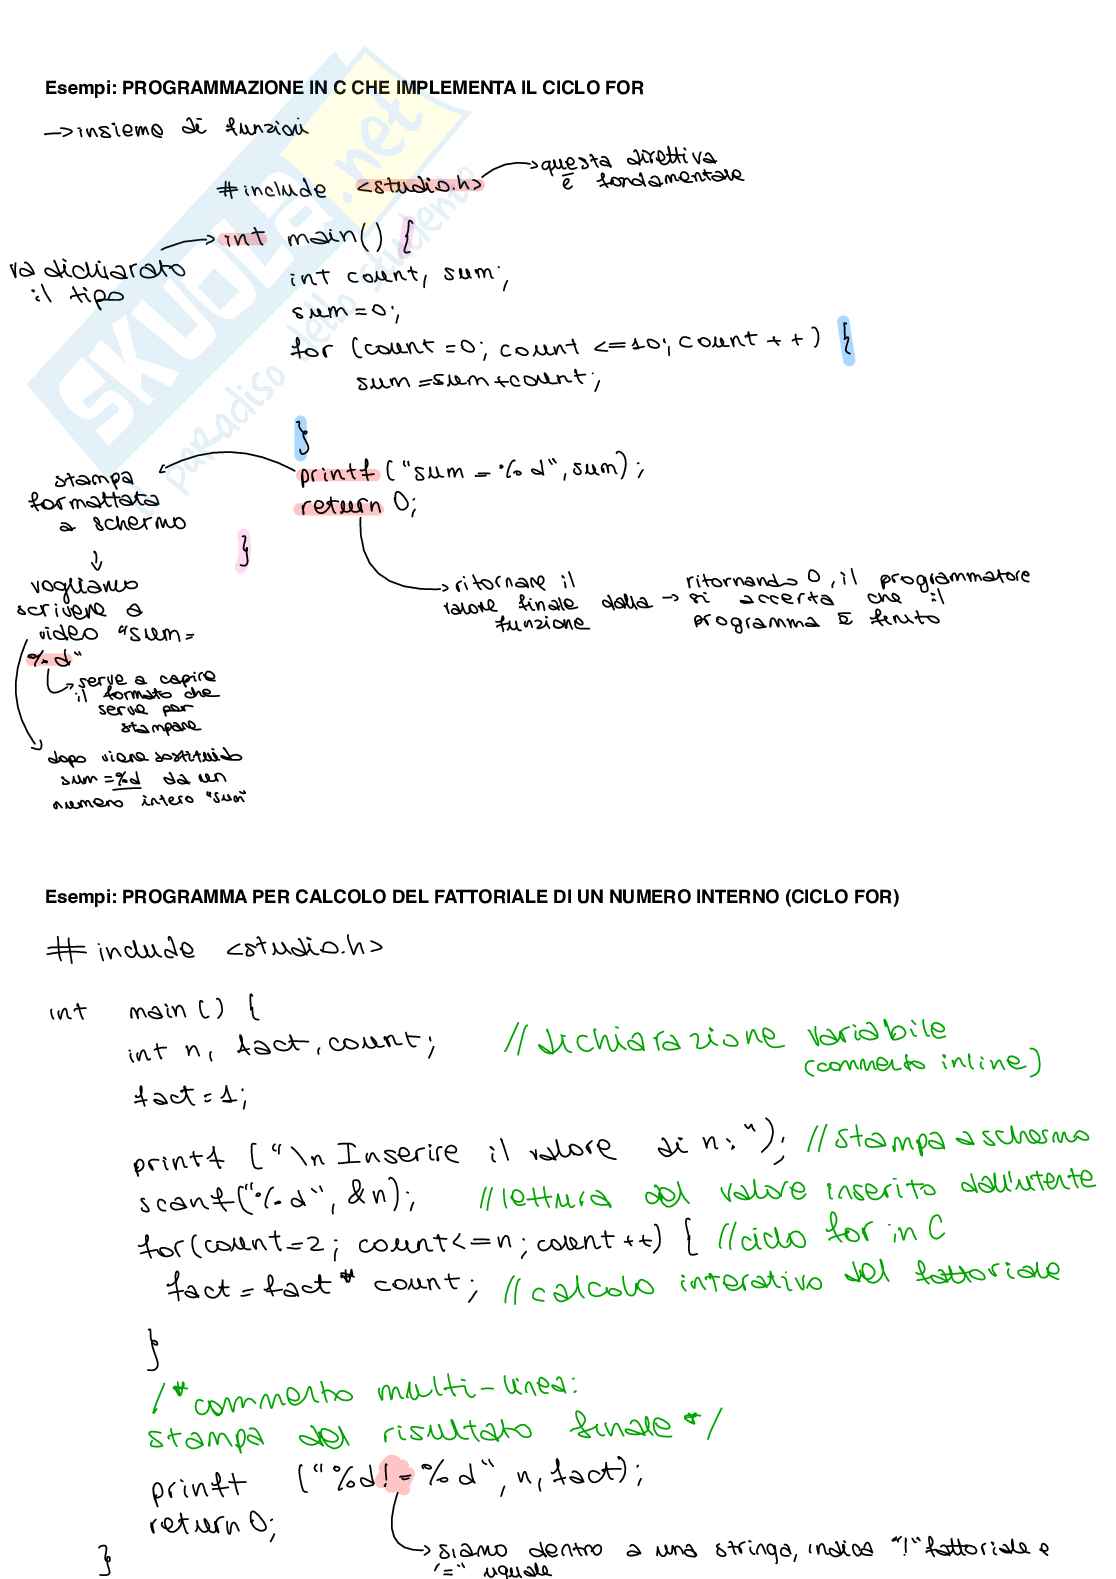 Esempi: PROGRAMMAZIONE IN C CHE IMPLEMENTA IL CICLO FOR
→insieme di funzioni
#include <studio.h>
→questa direttiva
è fondamentale
int main() {
va dichiarato
il tipo
int count, sum;
sum=0;
for (count=0; count <=10; count ++) {
sum=sum+count;
}
printf ("sum = %d", sum);
return 0;
}
stampa
formattata
a schermo
↓
vogliamo
scrivere a
video "sum=
%d"
serve a capire
il formato che
serve per
stampare
dopo viene sostituido
sum=%d da un
numero intero "sum"
→ritornare il
valore finale dalla →
funzione
ritornando 0, il programmatore
si accerta che il
programma è finito
SKUOLA.net
paradiso dello studente
Esempi: PROGRAMMA PER CALCOLO DEL FATTORIALE DI UN NUMERO INTERNO (CICLO FOR)
# include <studio.h>
int main () {
int n, fact, count; //dichiarazione variabile
(commento inline)
fact=1;
printf ("\n Inserire il valore di n:"); //stampa a schermo
scanf("%d", &n); //lettura del valore inserito dall'utente
for(count=2; count<=n; count++) { //ciclo for in C
fact=fact* count; //calcolo interativo del fattoriale
}
/*commento multi-linea:
stampa del risultato finale*/
printf ("%d!=%d", n, fact);
return 0;
}
→siamo dentro a una stringa, indica "!" fattoriale e
"=" uguale